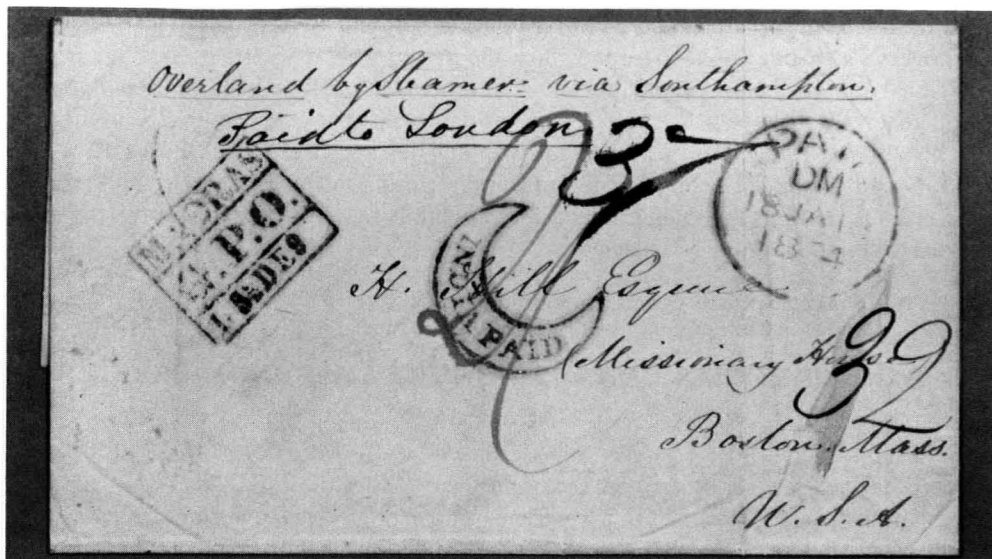 Overland by Steamer via Southampton.
Paid to London.
3
MADRAS
G.P.O.
DE 9
INDIA
PAID
PAI
DM
18 JA
1854
H. Hill Esquire
Missionary House
32
Boston. Mass.
U.S.A.